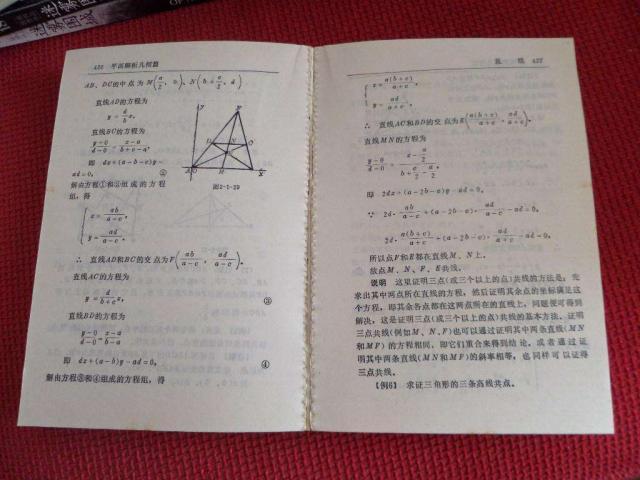 436 平面解析几何篇
AB、DC的中点为 M(a/2, 0)、N(b + c/2, d)
直线AD的方程为
y = d/b x,
直线BC的方程为
y-0/d-0 = x-a/b+c-a,
即 dx+(a-b-c)y-
ad=0, ②
解由方程①和②组成的方程
组,得
x = ab/a-c,
y = ad/a-c,
∴ 直线AD和BC的交点为F(ab/a-c, ad/a-c),
直线AC的方程为
y = d/b+c x, ③
直线BD的方程为
y-0/d-0 = x-a/b-a,
即 dx+(a-b)y-ad=0, ④
解由方程③和④组成的方程组,得
图2-1-29
直 线 437
x = a(b+c)/a+c,
y = ad/a+c,
∴ 直线AC和BD的交点为E(a(b+c)/a+c, ad/a+c),
直线MN的方程为
即 2dx+(a-2b-c)y-ad=0,
∵ 2d·ab/a-c+(a-2b-c)·ad/a-c-ad=0,
2d·a(b+c)/a+c+(a-2b-c)·ad/a+c-ad=0,
所以点F和E都在直线M、N上。
故点M、N、F、E共线。
说明 这里证明三点(或三个以上的点)共线的方法是:先
求出其中两点所在直线的方程,然后证明其余点的坐标满足这
个方程,即其余各点都在这两点所在的直线上,问题便可得到
解决,这是证明三点(或三个以上的点)共线的基本方法。证明
三点共线(例如M、N、F)也可以通过证明其中两条直线(MN
和MF)的方程相同,即它们重合来得到结论,或者通过证
明其中两条直线(MN和MF)的斜率相等,也同样可以证得
三点共线。
【例6】 求证三角形的三条高线共点。